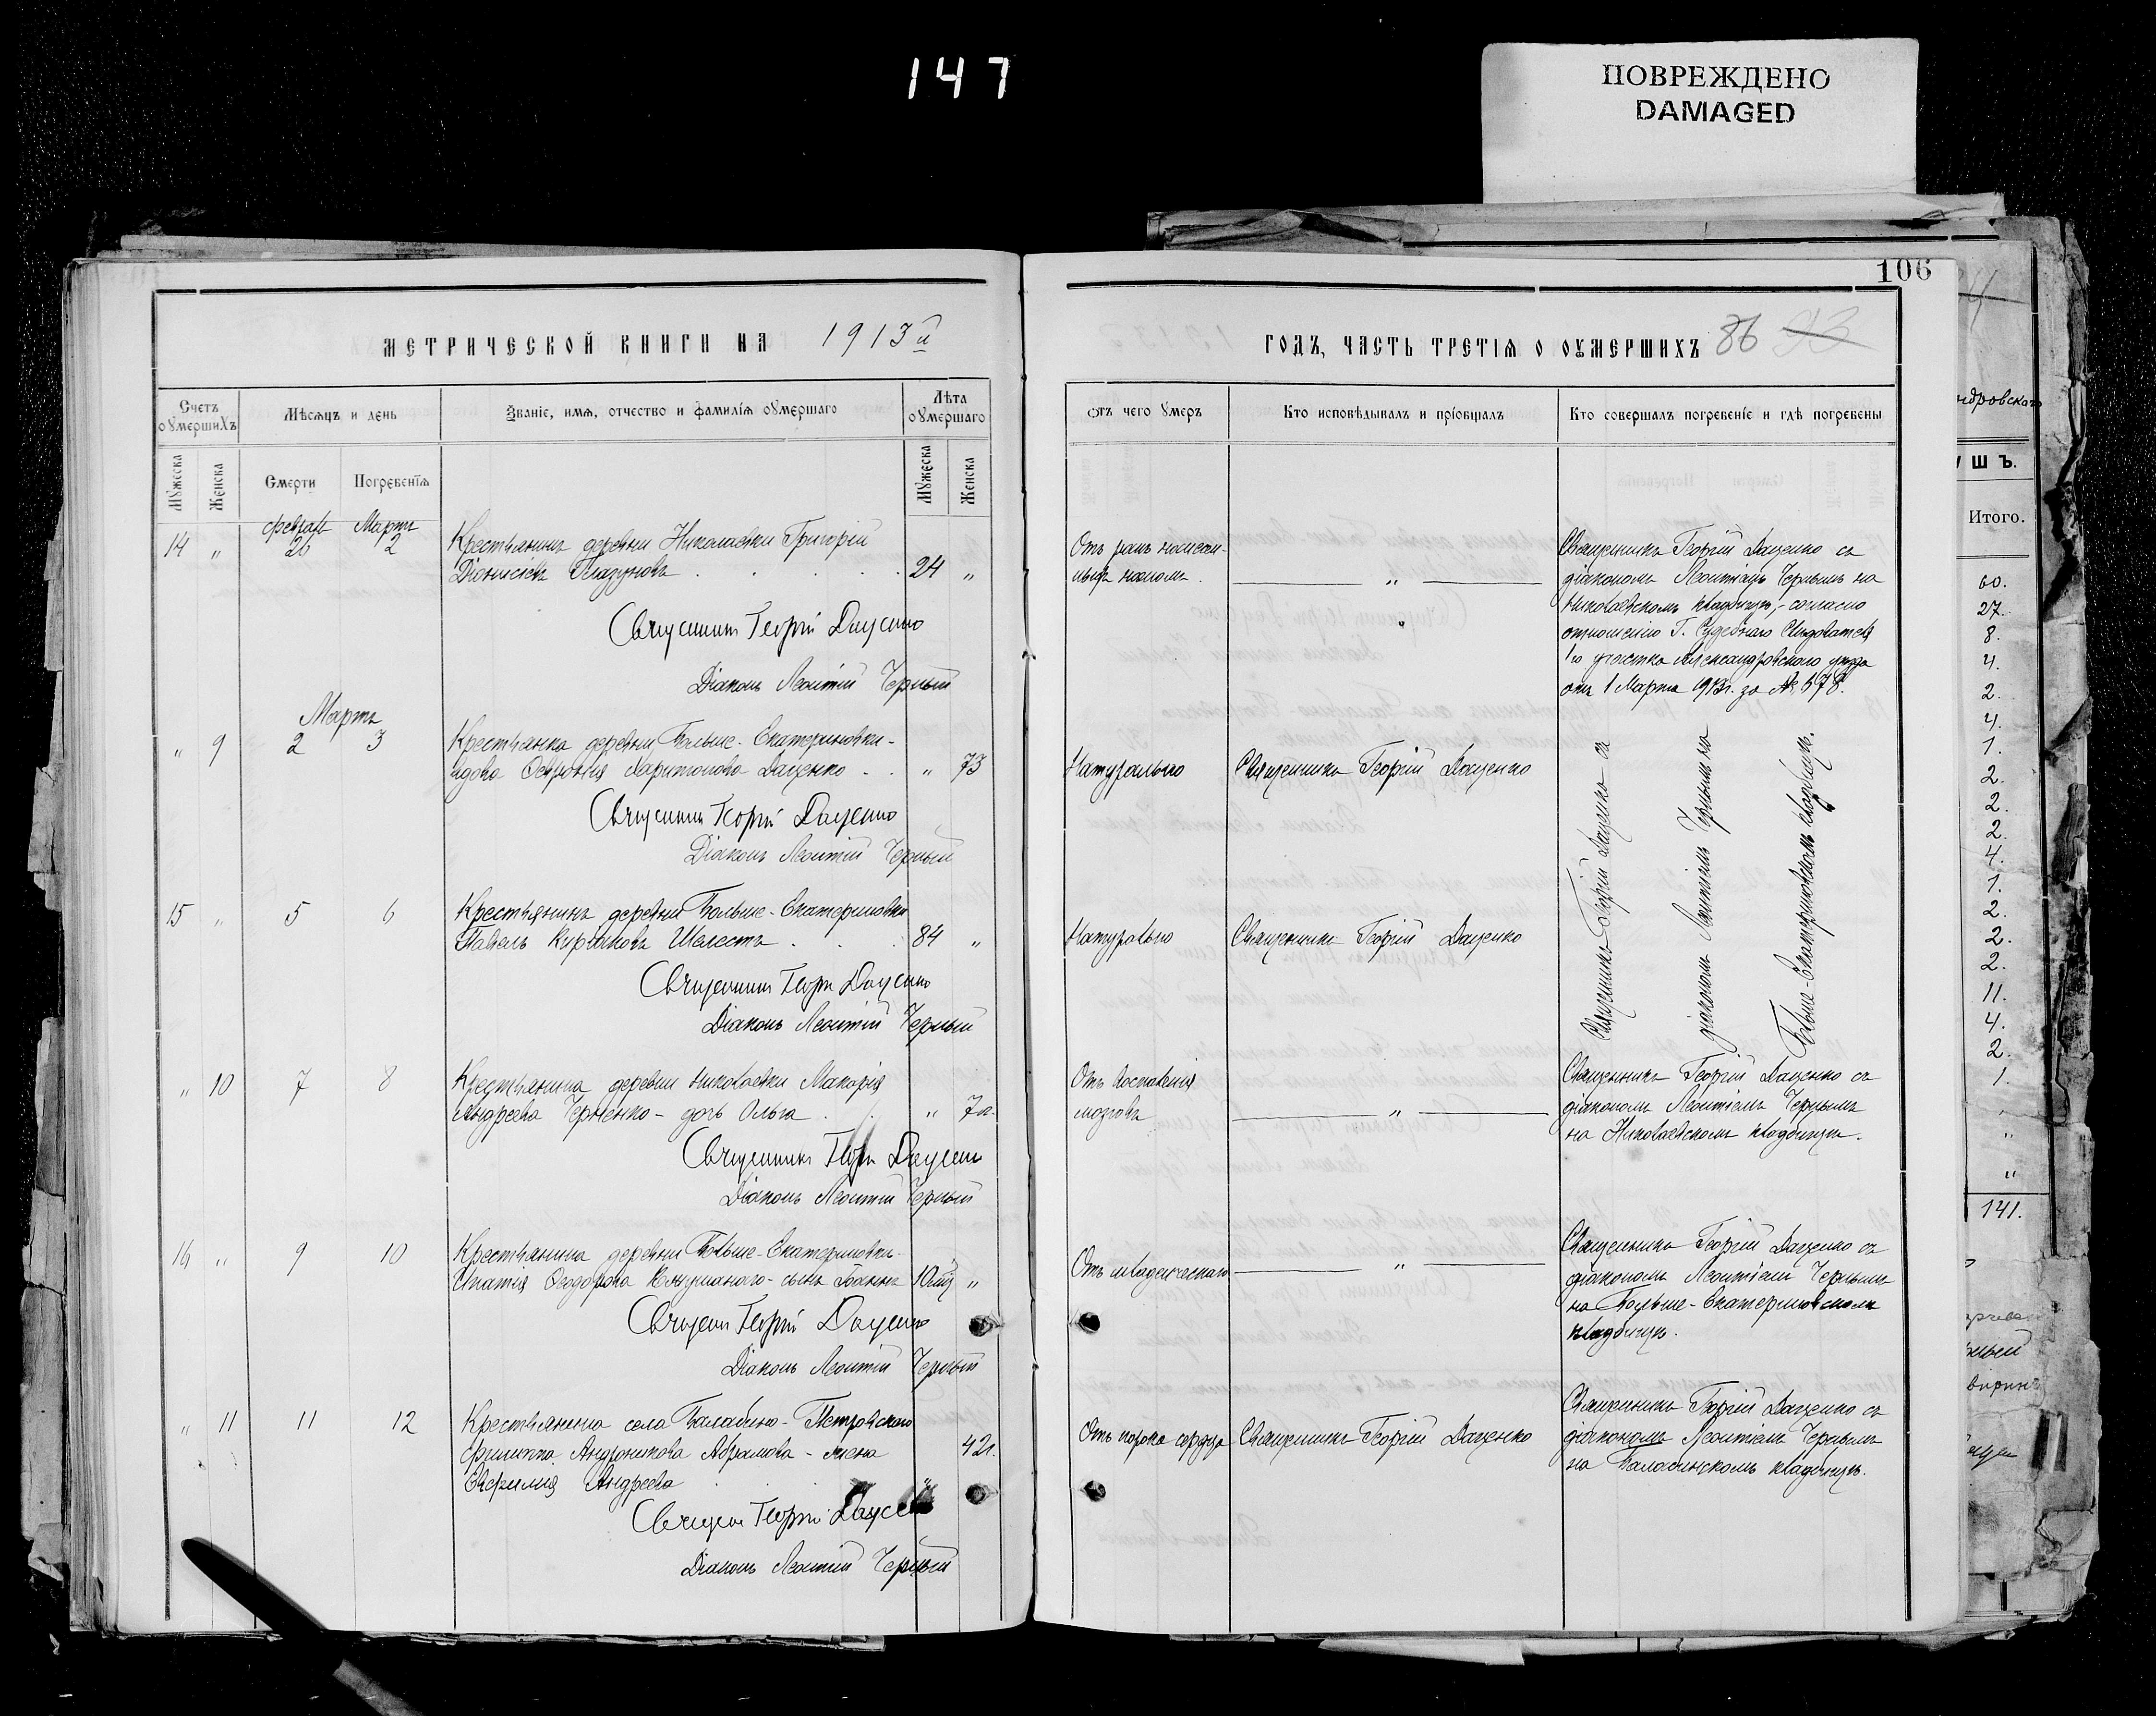 147
ПОВРЕЖДЕНО
DAMAGED
106
МЕТРИЧЕСКОЙ КНИГИ НА 1913й
Счетъ оумершихъ
Мѣсяцъ и день
Званіе, имя, отчество и фамилія оумершаго
Лѣта оумершаго
Мужеска
Женска
Смерти
Погребенія
Мужеска
Женска
Феврал Мартъ
14 " 26 2 Крестьянинъ деревни Николаевки Григорій
Діонисіевъ Глазуновъ . . . . 24 "
Священникъ Георгій Даценко
Діаконъ Леонтій Черный
Мартъ
" 9 2 3 Крестьянка деревни Больше-Екатериновки-
вдова Февронія Харитонова Даценко . . " 73
Священникъ Георгій Даценко
Діаконъ Леонтій Черный
15 " 5 6 Крестьянинъ деревни Больше-Екатериновки
Павелъ Куріаковъ Шелестъ . . . 84 "
Священникъ Георгій Даценко
Діаконъ Леонтій Черный
" 10 7 8 Крестьянина деревни Николаевки Макарія
Андреева Черненко - дочь Ольга . . " 7л.
Священникъ Георгій Даценко
Діаконъ Леонтій Черный
16 " 9 10 Крестьянина деревни Больше-Екатериновки-
Игнатія Ѳеодорова - сынъ Іоаннъ 10 "
Священ Георгій Даценко
Діаконъ Леонтій Черный
" 11 11 12 Крестьянина села Балабино-Петровскаго
Филиппа Андроникова Абрамова - жена 42л.
Евфимія Андреева . . . "
Священ Георгій Даценко
Діаконъ Леонтій Черный
ГОДЪ, ЧАСТЬ ТРЕТІЯ О ОУМЕРШИХЪ 86 93
Отъ чего умеръ
Кто исповѣдывалъ и пріобщалъ
Кто совершалъ погребеніе и гдѣ погребены
Отъ ранъ нанесен-
ныхъ ножомъ. "
Священникъ Георгій Даценко съ
діакономъ Леонтіемъ Чернымъ на
Николаевскомъ кладбищѣ,- согласно
отношенію Г. Судебнаго Слѣдователя
1го участка Александровскаго уѣзда
отъ 1 Марта 1913г. за № 578.
Натурально Священникъ Георгій Даценко
Натурально Священникъ Георгій Даценко
Священникъ Георгій Даценко съ
діакономъ Леонтіемъ Чернымъ на
Больше-Екатериновскомъ кладбищѣ.
Отъ воспаленія
мозговъ "
Священникъ Георгій Даценко съ
діакономъ Леонтіемъ Чернымъ
на Николаевскомъ кладбищѣ.
Отъ младенческаго "
Священникъ Георгій Даценко съ
діакономъ Леонтіемъ Чернымъ
на Больше-Екатериновскомъ
кладбищѣ.
Отъ порока сердца Священникъ Георгій Даценко
Священникъ Георгій Даценко съ
діакономъ Леонтіемъ Чернымъ
на Балабинскомъ кладбищѣ.
ндровскаго
УШЪ.
Итого.
60.
27.
8.
4.
2.
4.
1.
2.
2.
2.
4.
1.
2.
2.
2.
11.
4.
2.
1.
"
"
141.